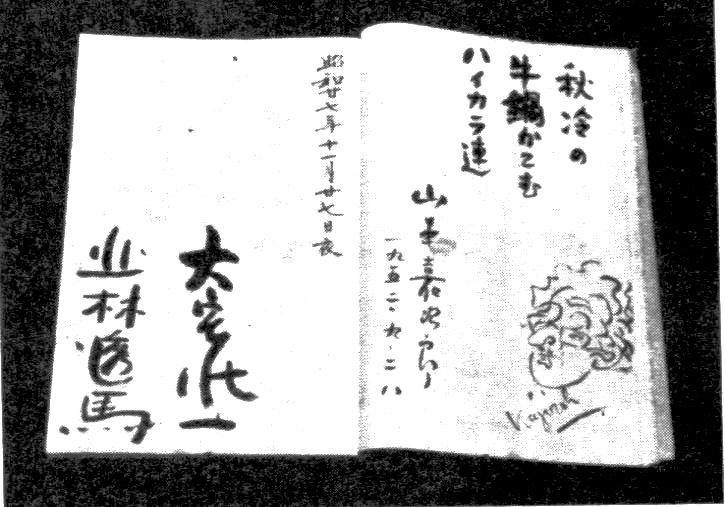 秋冷の
牛鍋かこむ
ハイカラ連
山本嘉次
一九五二・九・二八
昭和廿七年十一月廿七日夜
大宅壮一
北林透馬